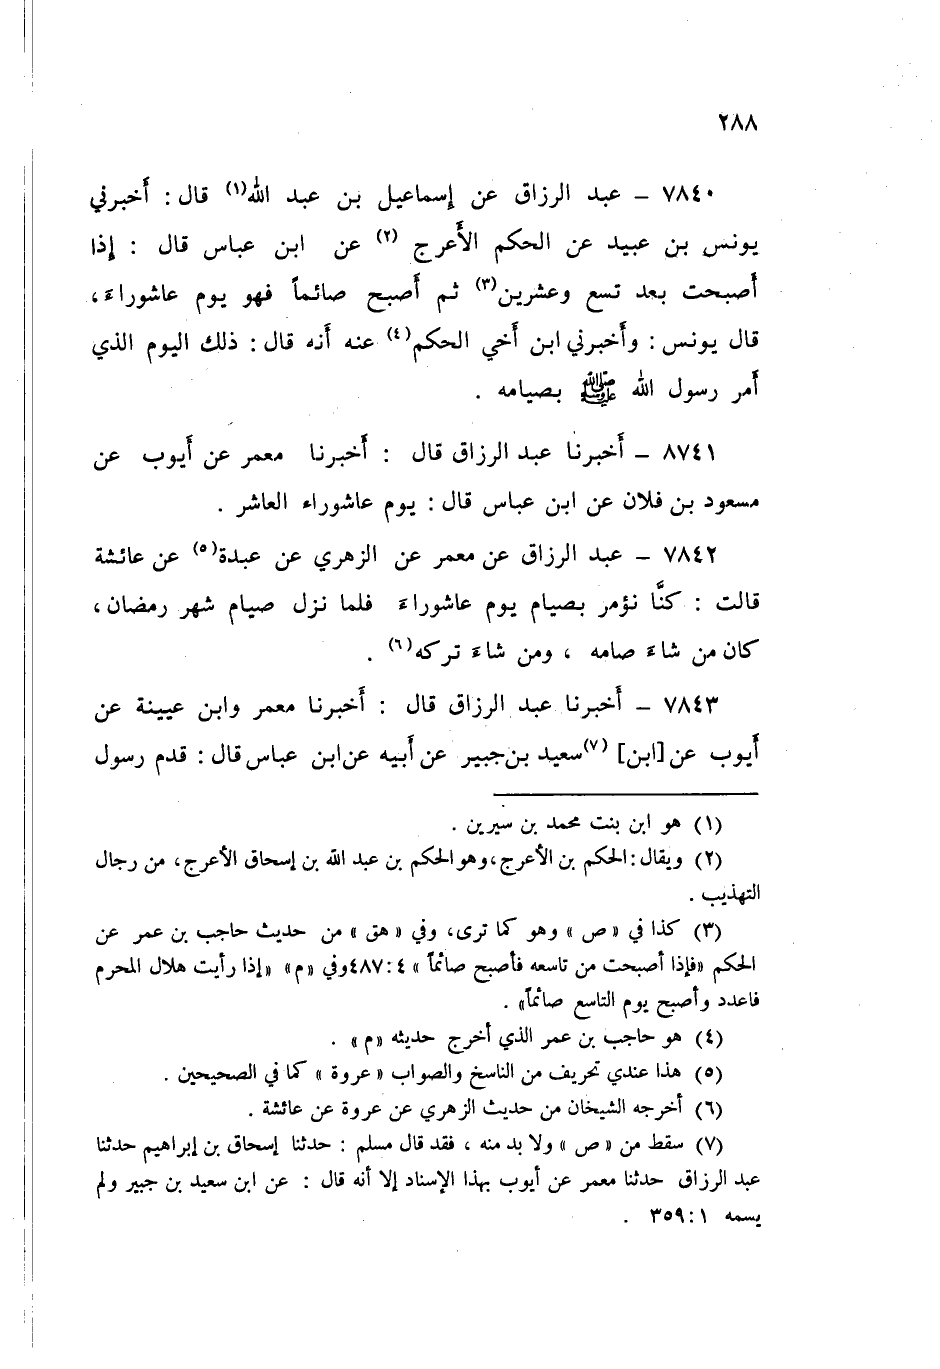 ٢٨٨
٧٨٤٠ – عبد الرزاق عن إسماعيل بن عبد الله(١) قال : أخبرني
يونس بن عبيد عن الحكم الأعرج (٢) عن ابن عباس قال : إذا
أصبحت بعد تسع وعشرين(٣) ثم أصبح صائماً فهو يوم عاشوراءَ ،
قال يونس : وأخبرني ابن أخي الحكم(٤) عنه أنه قال : ذلك اليوم الذي
أمر رسول الله ﷺ بصيامه .
٨٧٤١ – أخبرنا عبد الرزاق قال : أخبرنا معمر عن أيوب عن
مسعود بن فلان عن ابن عباس قال : يوم عاشوراء العاشر .
٧٨٤٢ – عبد الرزاق عن معمر عن الزهري عن عبدة(٥) عن عائشة
قالت : كنَّا نؤمر بصيام يوم عاشوراءَ فلما نزل صيام شهر رمضان ،
كان من شاءَ صامه ، ومن شاءَ تركه(٦) .
٧٨٤٣ – أخبرنا عبد الرزاق قال : أخبرنا معمر وابن عيينة عن
أيوب عن [ابن] (٧)سعيد بن جبير عن أبيه عن ابن عباس قال : قدم رسول
(١) هو ابن بنت محمد بن سيرين .
(٢) ويقال : الحكم بن الأعرج ، وهو الحكم بن عبد الله بن إسحاق الأعرج ، من رجال
التهذيب .
(٣) كذا في « ص » وهو كما ترى ، وفي « هق » من حديث حاجب بن عمر عن
الحكم «فإذا أصبحت من تاسعه فأصبح صائماً » ٤ : ٤٨٧وفي «م» «إذا رأيت هلال المحرم
فاعدد وأصبح يوم التاسع صائماً» .
(٤) هو حاجب بن عمر الذي أخرج حديثه «م» .
(٥) هذا عندي تحريف من الناسخ والصواب « عروة » كما في الصحيحين .
(٦) أخرجه الشيخان من حديث الزهري عن عروة عن عائشة .
(٧) سقط من « ص » ولا بد منه ، فقد قال مسلم : حدثنا إسحاق بن إبراهيم حدثنا
عبد الرزاق حدثنا معمر عن أيوب بهذا الإسناد إلا أنه قال : عن ابن سعيد بن جبير ولم
يسمه ١ : ٣٥٩ .